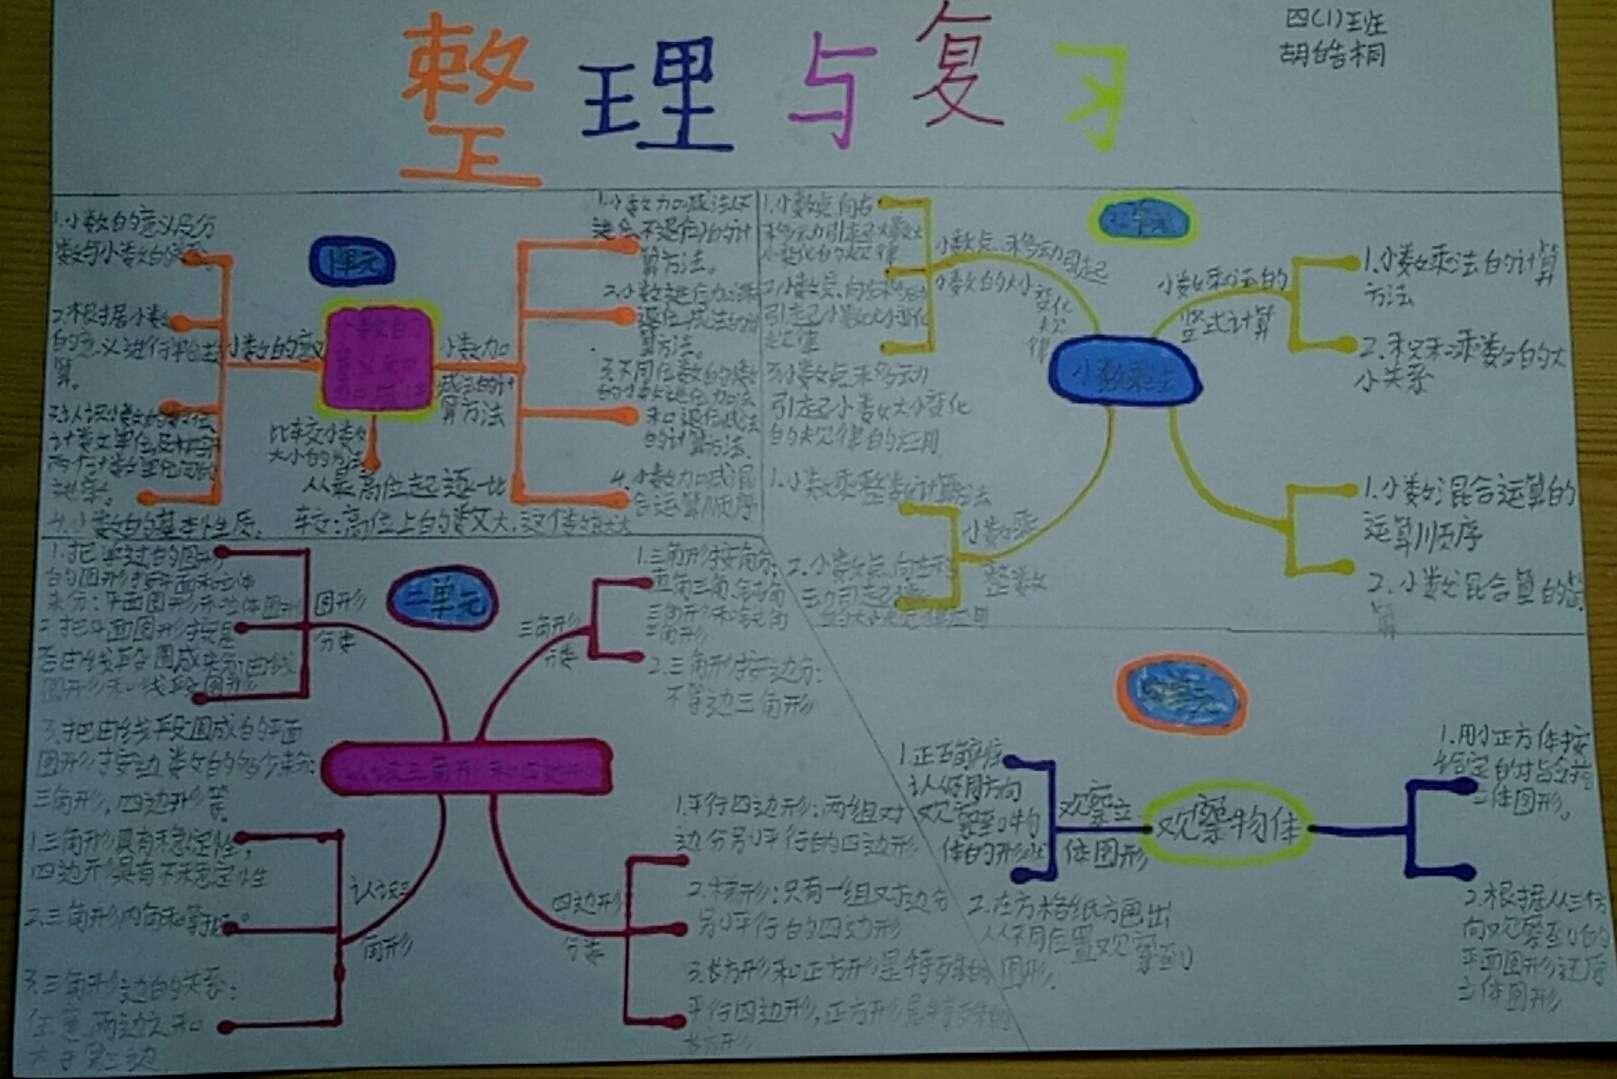 整理与复习
四(1)班
胡皓桐
1单元
小数的意义
小数加
减法的计
算方法
比较小数
大小的方法
从最高位起逐一比
较:高位上的数大,这个数就大
1.小数的意义及分
数与小数的关系。
2.根据小数
4.小数的基本性质。
算方法。
2.小数进位加法和
退位减法的计
算方法。
3.不同位数的小数
和退位减法
的计算方法。
4.小数加减混
合运算顺序
小数乘法
小数点移动引起
小数的大小变化
规律
1.小数点向右
移动引起小数大
小变化的规律
2.小数点向左移动
引起小数大小变化
规律
3.小数点移动
引起小数大小变化
的规律的应用
小数乘法的
竖式计算
1.小数乘法的计算
方法
2.积和乘数的大
小关系
小数乘
整数
1.小数乘整数计算方法
2.小数点向左移
1.小数混合运算的
运算顺序
2.小数混合算的
二单元
认识三角形和四边形
图形
分类
1.把学过的图形
的图形按平面和立体
来分:平面图形和立体图形
2.把平面图形按是
否由线段围成来分:曲线
图形和线段图形
3.把由线段围成的平面
图形按边数的多少来分:
三角形,四边形等
三角形
分类
1.三角形按角分:
直角三角、钝角
三角形和锐角
三角形
2.三角形按边分:
不等边三角形
认识三
角形
1.三角形具有稳定性,
四边形具有不稳定性
2.三角形内角和等于180°
3.三角形边的关系:
任意两边之和
大于第三边
四边形
分类
1.平行四边形:两组对
边分别平行的四边形
2.梯形:只有一组对边分
别平行的四边形
3.长方形和正方形是特殊的
平行四边形,正方形是特殊的
长方形
观察物体
观察立
体图形
1.正确辨
认从不同方向
观察到物
体的形状
2.在方格纸方画出
从不同位置观察到
图形.
1.用小正方体按
给定的对应搭
立体图形。
2.根据从三个方
向观察到的
平面图形还原
立体图形